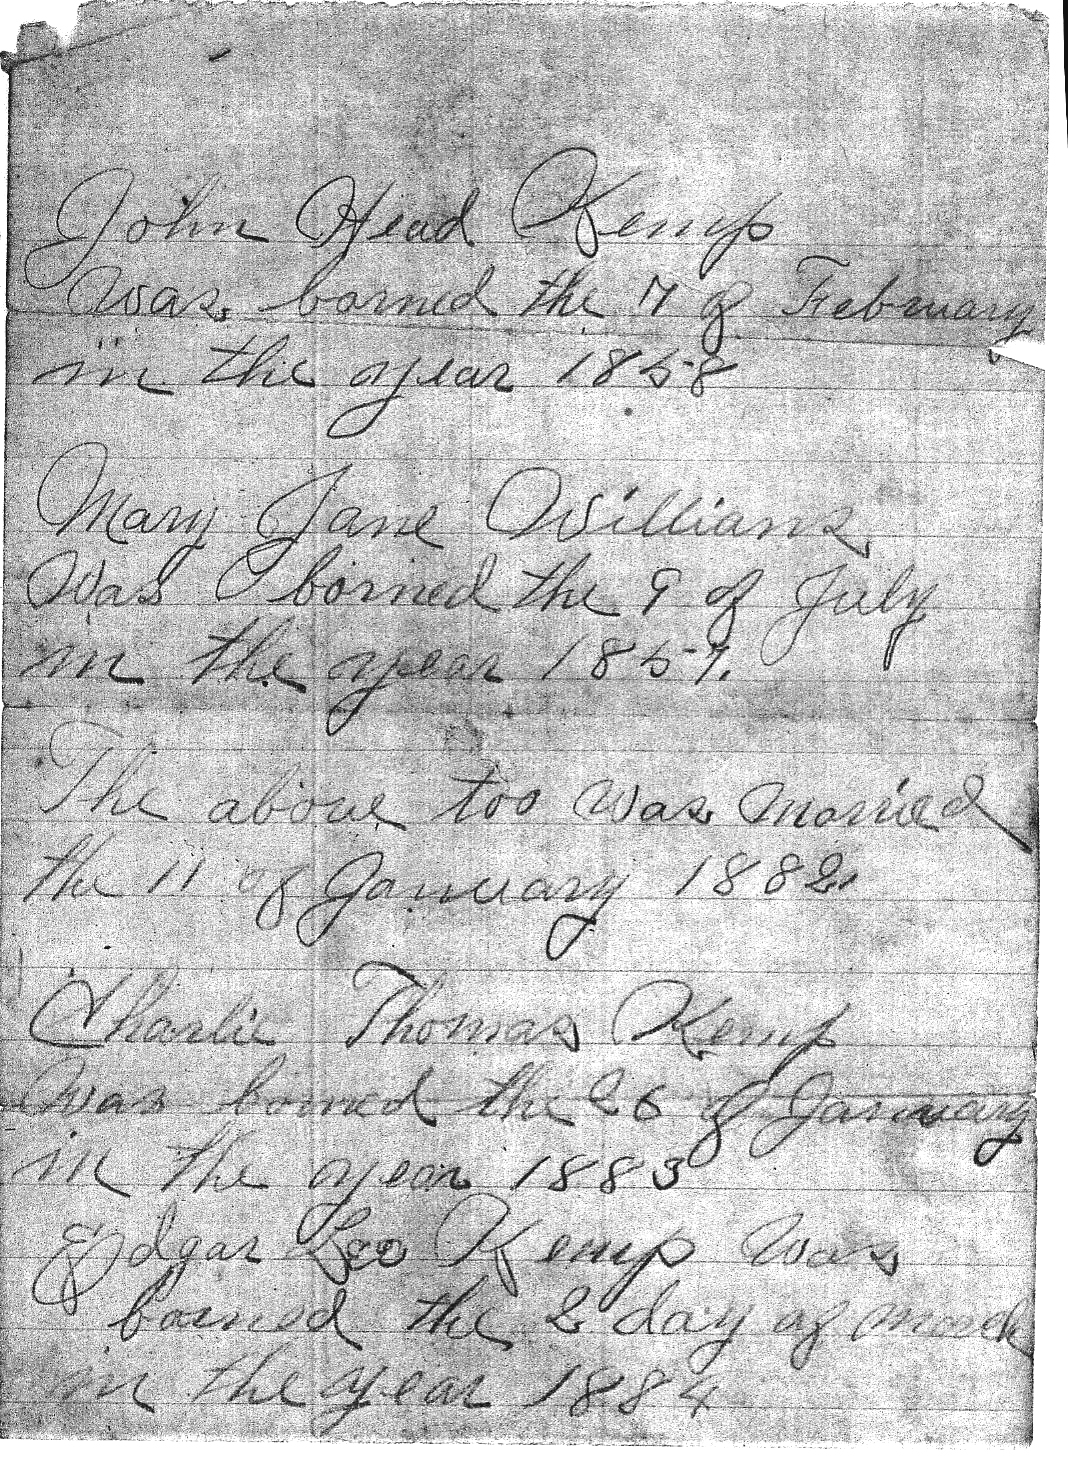 John Head Kemp
Was borned the 7 of February
in the year 1858
Mary Jane Willians
Was borned the 9 of July
in the year 1857.
The above too was Maried
the 11 of January 1882.
Charlie Thomas Kemp
Was borned the 26 of January
in the year 1883
Edgar Leo Kemp Was
borned the 2 day of March
in the year 1884